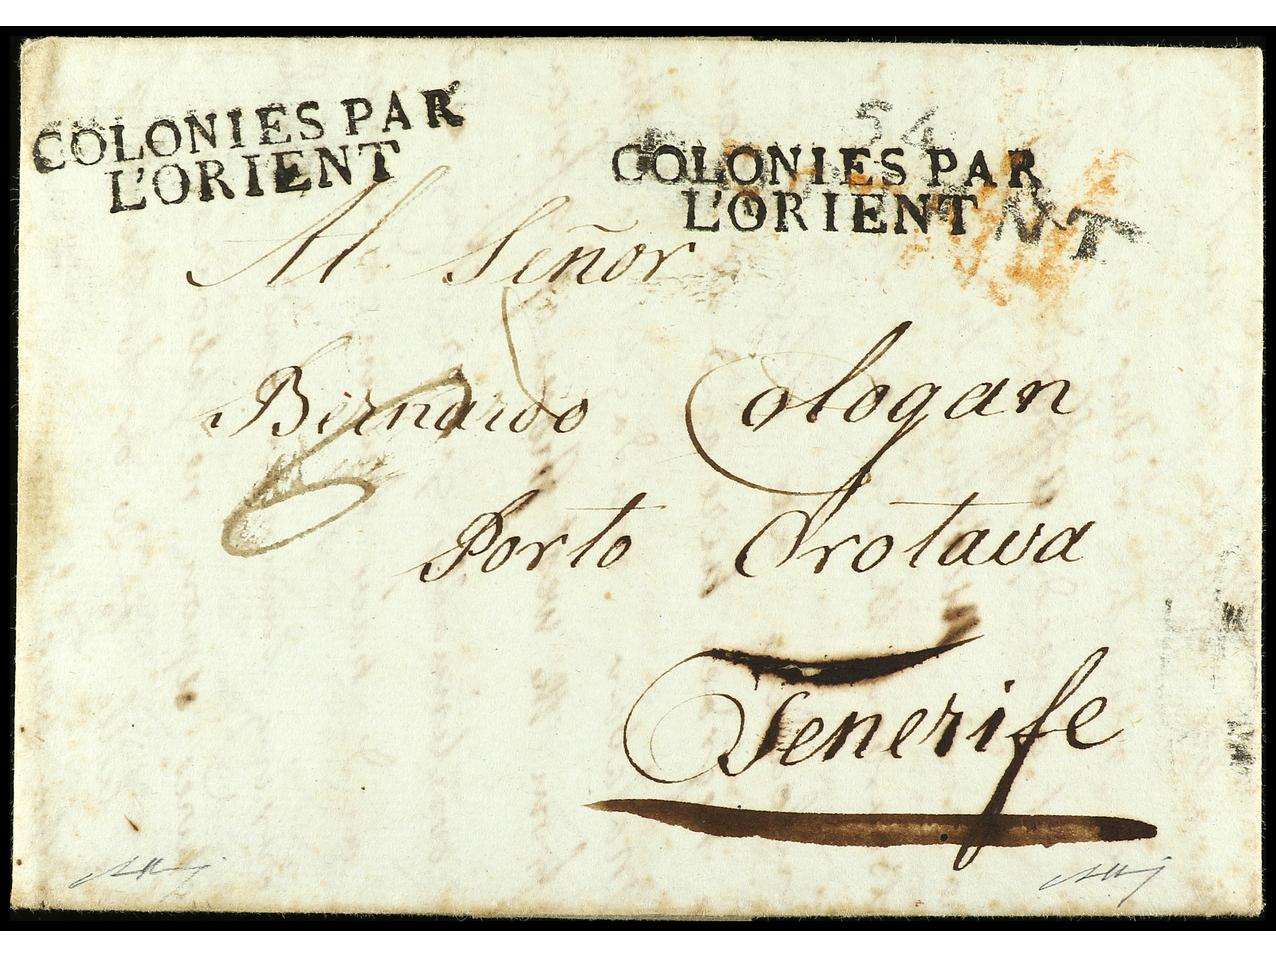 COLONIES PAR
L'ORIENT
54
COLONIES PAR
L'ORIENT
NT
Al Señor
Bernardo Cologan
Porto Orotava
Tenerife